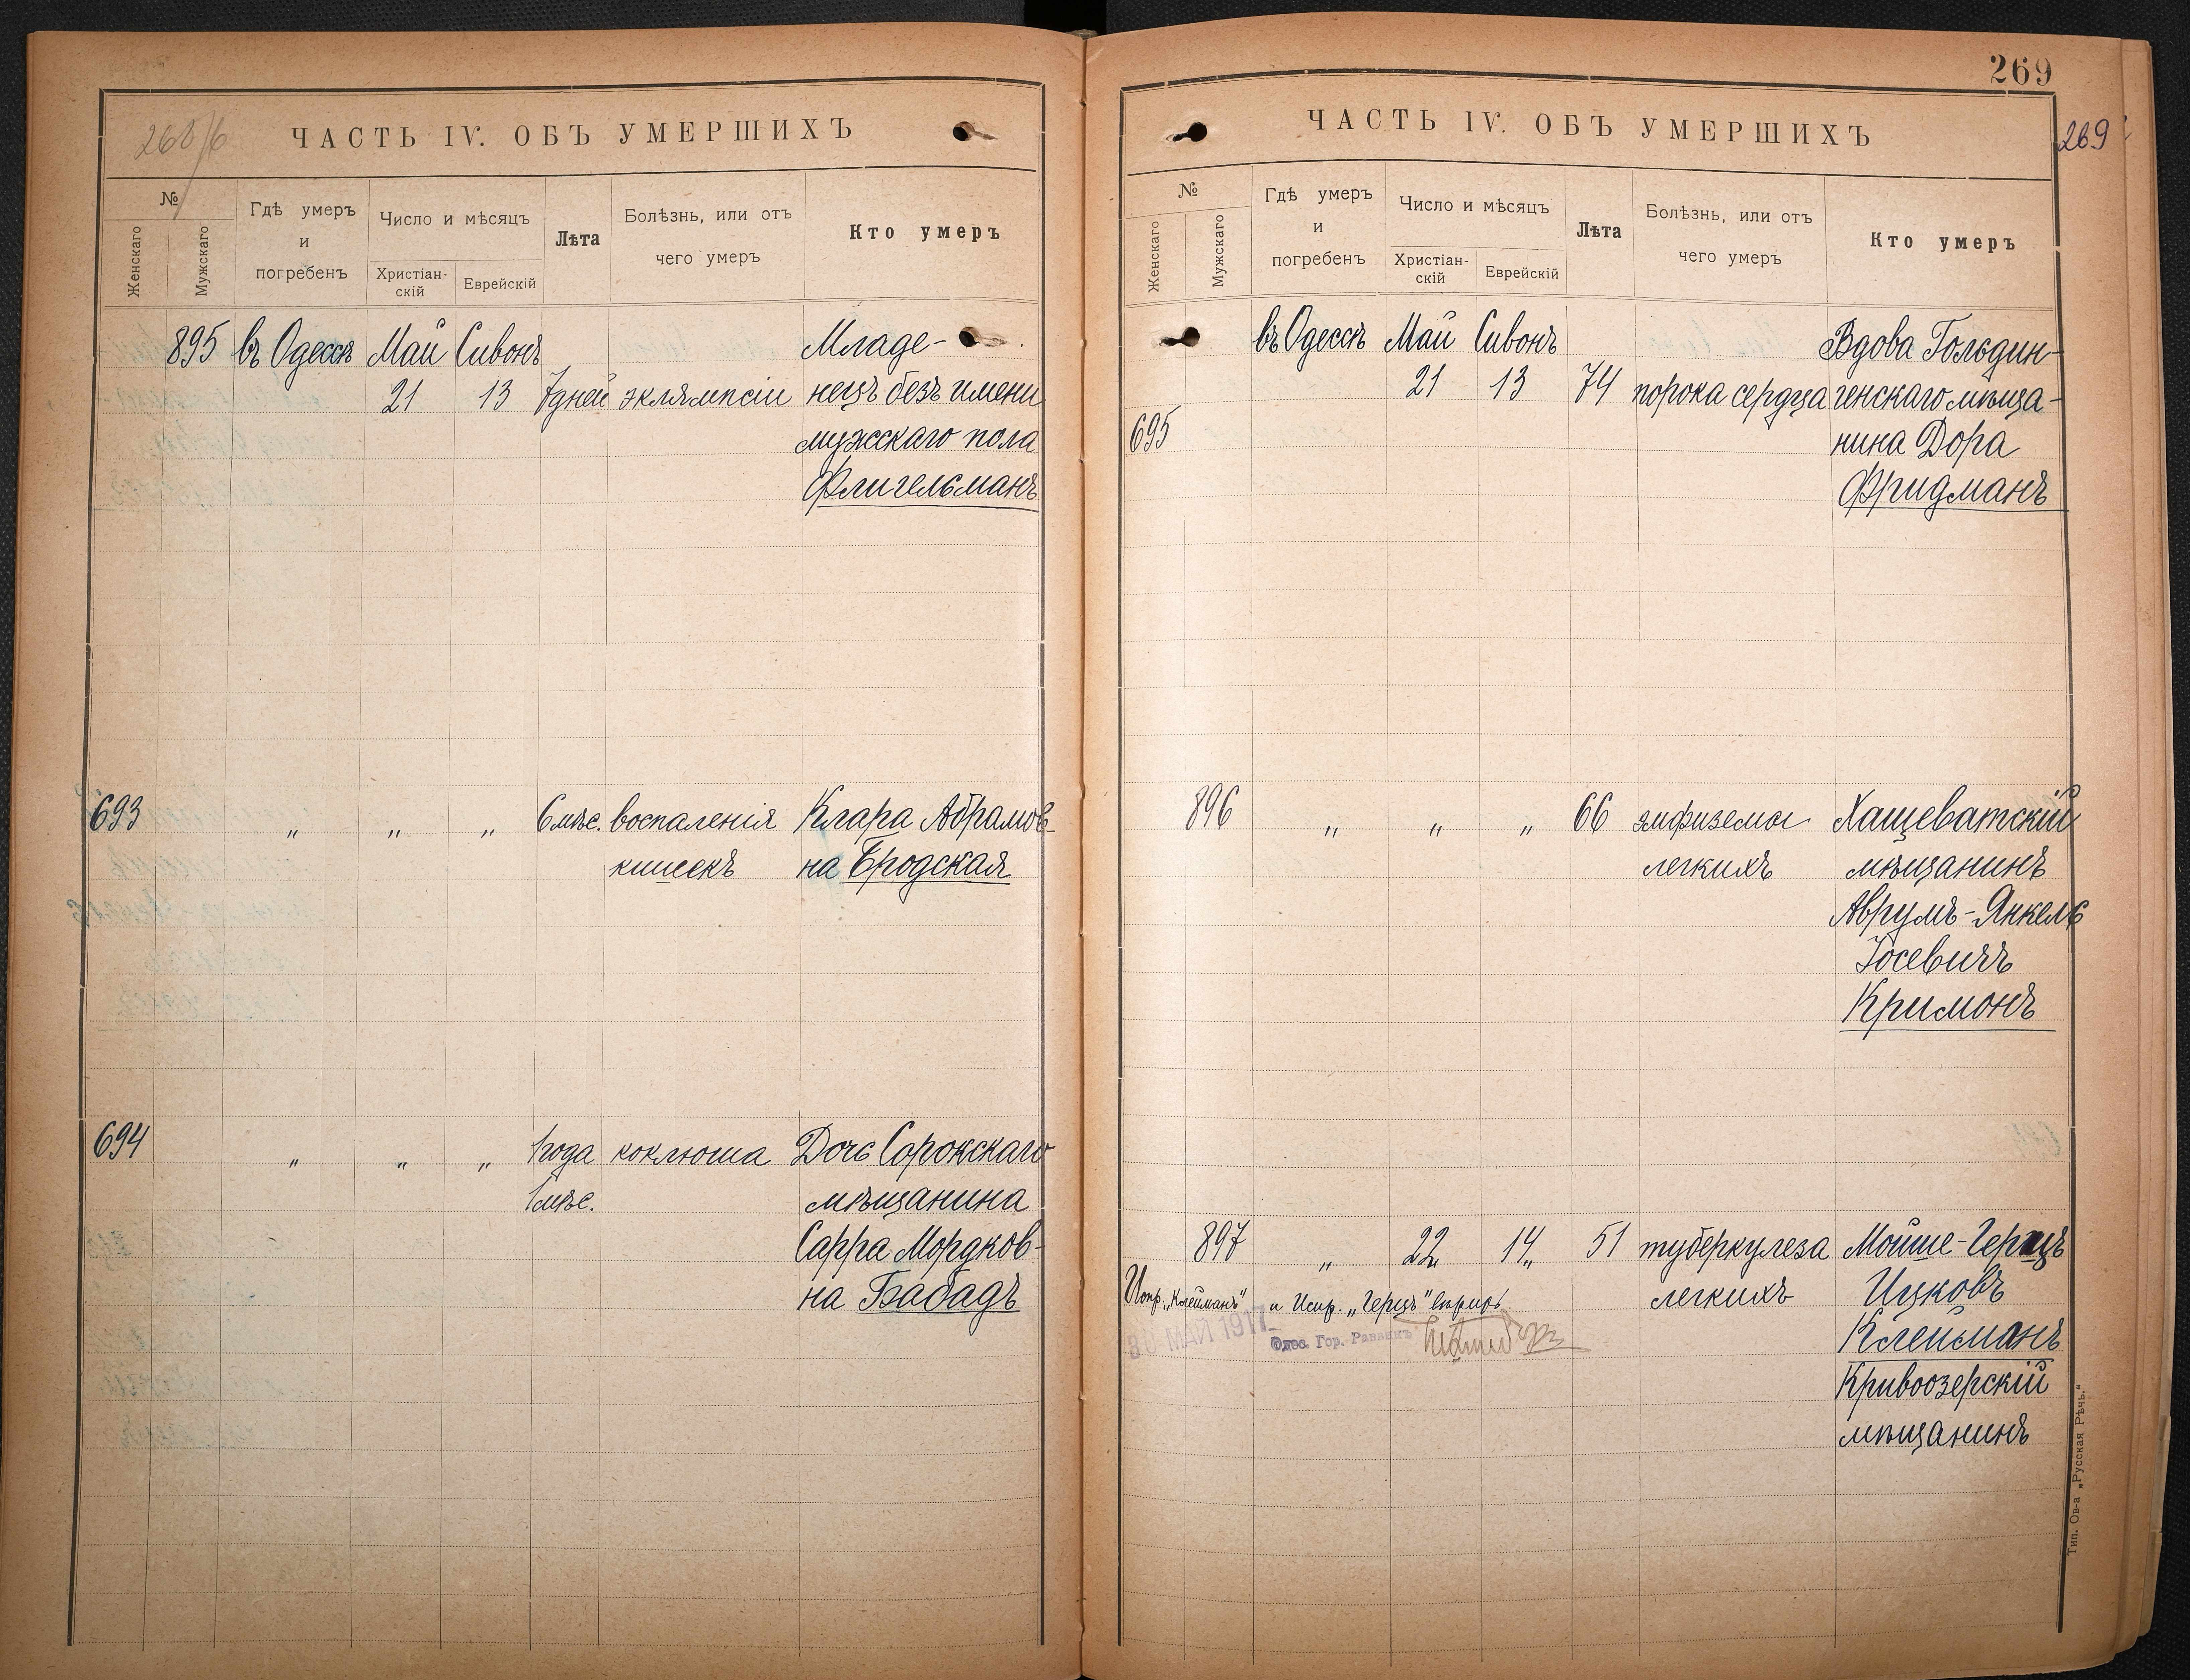 268/б
ЧАСТЬ IV. ОБЪ УМЕРШИХЪ
№
Женскаго
Мужскаго
Гдѣ умеръ
и
погребенъ
Число и мѣсяцъ
Христіан-
скій
Еврейскій
Лѣта
Болѣзнь, или отъ
чего умеръ
Кто умеръ
895 въ Одессѣ Май Сивонъ Младе-
21 13 7 дней эклямпсіи нецъ безъ имени
мужскаго пола
Флигельманъ
693 „ „ „ 6 мѣс. воспаленія Клара Абрамов-
кишекъ на Бродская
694 „ „ „ 1 года коклюша Дочь Сорокскаго
1 мѣс. мѣщанина
Сарра Мордков-
на Бабадъ
269
269
ЧАСТЬ IV. ОБЪ УМЕРШИХЪ
№
Женскаго
Мужскаго
Гдѣ умеръ
и
погребенъ
Число и мѣсяцъ
Христіан-
скій
Еврейскій
Лѣта
Болѣзнь, или отъ
чего умеръ
Кто умеръ
въ Одессѣ Май Сивонъ Вдова Гольдин-
21 13 74 порока сердца генскаго мѣща-
695 нина Дора
Фридманъ
896 „ „ „ 66 эмфиземы Хащеватскій
легкихъ мѣщанинъ
Аврумъ-Янкель
Іосевичъ
Кримонъ
897 „ 22„ 14„ 51 туберкулеза Мойше-Герцъ
легкихъ Ицковъ
Испр. „Клейманъ" и Испр. „Герцъ" вѣрно.
30 МАЙ 1917
Одес. Гор. Раввинъ
Клейманъ
Кривоозерскій
мѣщанинъ
Тип. Ов-а „Русская Рѣчь."